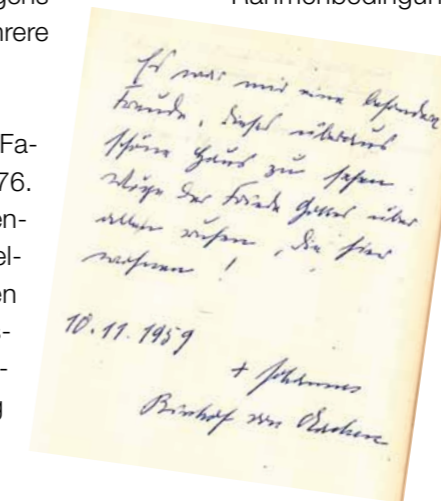 gens
hrere
Rahmenbedingun
Fa-
76.
en-
el-
en
s-
-
g
Es war mir eine besondere
Freude, dieses überaus
schöne Haus zu sehen.
Möge der Friede Gottes über
allen ruhen, die hier
wohnen!
10.11.1959
+ Johannes
Bischof von Aachen